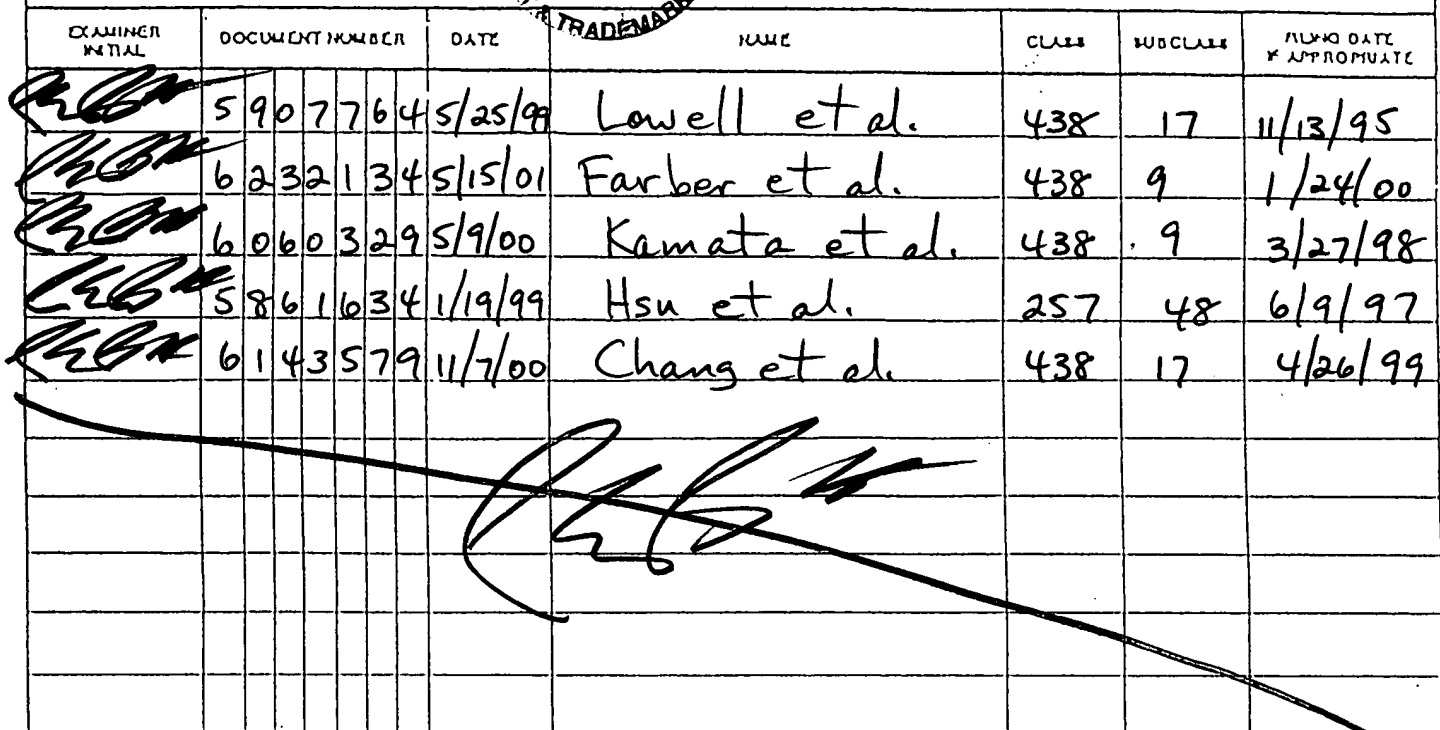 & TRADEMARK
EXAMINER INITIAL DOCUMENT NUMBER DATE NAME CLASS SUBCLASS FILING DATE IF APPROPRIATE
5907764 5/25/99 Lowell et al. 438 17 11/13/95
6232134 5/15/01 Farber et al. 438 9 1/24/00
6060329 5/9/00 Kamata et al. 438 9 3/27/98
5861634 1/19/99 Hsu et al. 257 48 6/9/97
6143579 11/7/00 Chang et al. 438 17 4/26/99